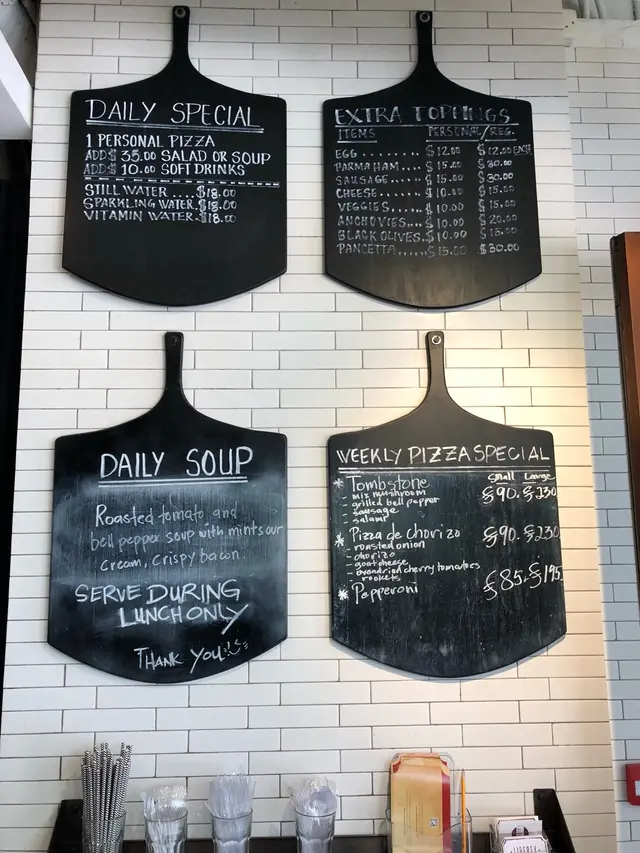 DAILY SPECIAL
1 PERSONAL PIZZA
ADD $ 35.00 SALAD OR SOUP
ADD $ 10.00 SOFT DRINKS
STILL WATER ... $18.00
SPARKLING WATER. $18.00
VITAMIN WATER. $18.00
EXTRA TOPPINGS
ITEMS PERSONAL/REG.
EGG ........ $12.00 $12.00 EACH
PARMA HAM .... $15.00 $30.00
SAUSAGE ...... $15.00 $30.00
CHEESE ....... $10.00 $15.00
VEGGIES ...... $10.00 $15.00
ANCHOVIES ... $10.00 $20.00
BLACK OLIVES. $10.00 $15.00
PANCETTA ..... $15.00 $30.00
DAILY SOUP
Roasted tomato and
bell pepper soup with mint sour
cream, crispy bacon.
SERVE DURING
LUNCH ONLY
THANK YOU
WEEKLY PIZZA SPECIAL
Small Large
* Tombstone $90. $230
- mix mushroom
- grilled bell pepper
- sausage
- salami
* Pizza de chorizo $90. $230
- roasted onion
- chorizo
- goat cheese
- ovendried cherry tomatoes
- rockets
* Pepperoni $85. $195
LIBERTY